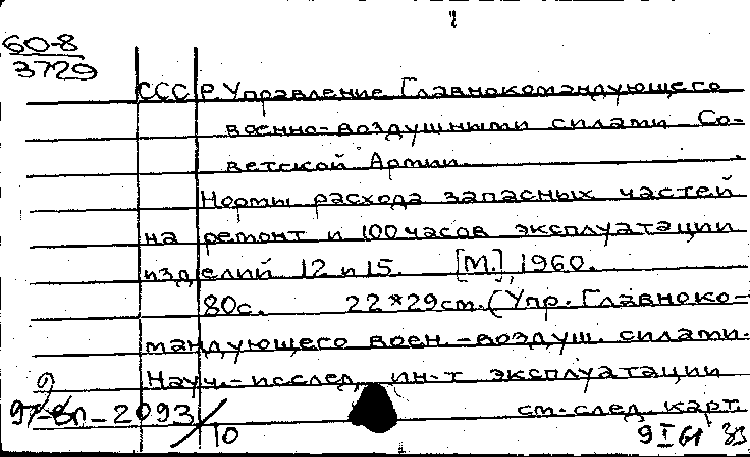 60-8
3729
СССР. Управление Главнокомандующего
военно-воздушными силами Со-
ветской Армии.
Нормы расхода запасных частей
на ремонт и 100 часов эксплуатации
изделий 12 и 15. [М.], 1960.
80с. 22*29см. (Упр. Главноко-
мандующего воен.-воздуш. силами.
Науч.-исслед. ин-т эксплуатации
см. след. карт.
2093/10
9 I 61